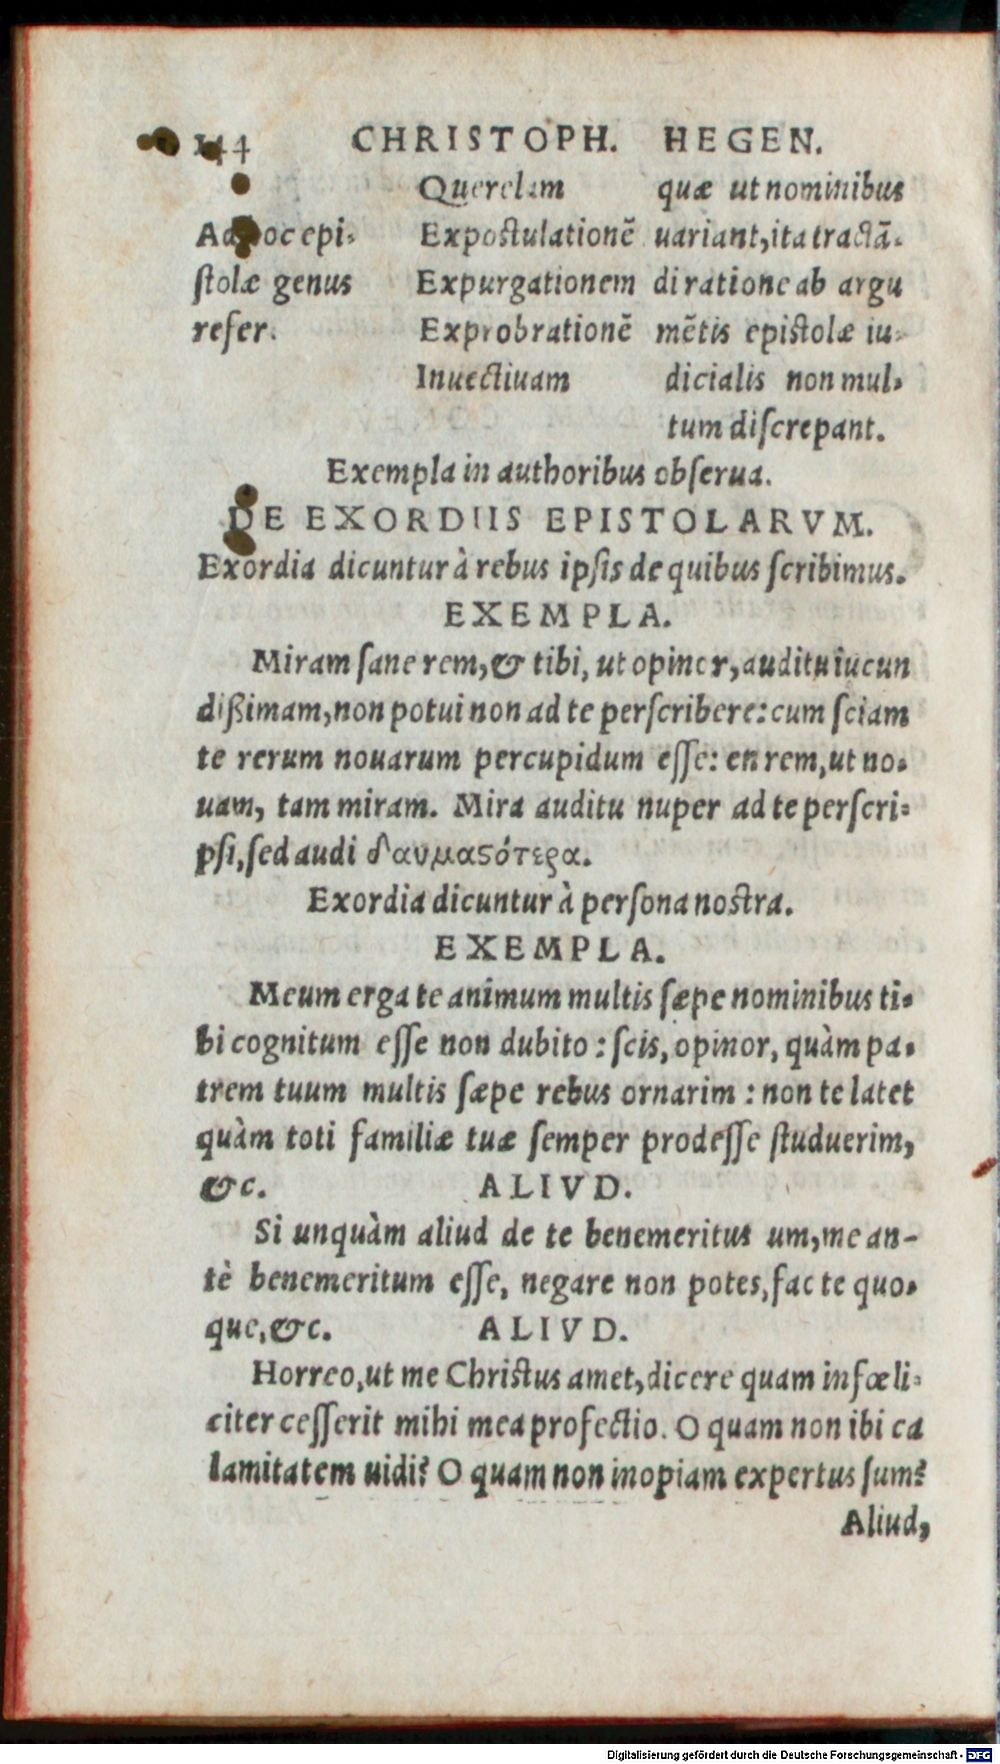 144 CHRISTOPH. HEGEN.
Querelam quæ ut nominibus
Ad hoc epi- Expostulationẽ uariant, ita tractã-
ſtolæ genus Expurgationem di ratione ab argu
refer. Exprobrationẽ mẽtis epistolæ iu-
Inuectiuam dicialis non mul-
tum diſcrepant.
Exempla in authoribus obſerua.
DE EXORDIIS EPISTOLARVM.
Exordia dicuntur à rebus ipſis de quibus ſcribimus.
EXEMPLA.
Miram ſane rem, & tibi, ut opinor, auditu iucun
dißimam, non potui non ad te perſcribere: cum ſciam
te rerum nouarum percupidum eſſe: en rem, ut no-
uam, tam miram. Mira auditu nuper ad te perſcri-
pſi, ſed audi θαυμαϛότερα.
Exordia dicuntur à perſona nostra.
EXEMPLA.
Meum erga te animum multis ſæpe nominibus ti-
bi cognitum eſſe non dubito: ſcis, opinor, quàm pa-
trem tuum multis ſæpe rebus ornarim: non te latet
quàm toti familiæ tuæ ſemper prodeſſe ſtuduerim,
&c. ALIVD.
Si unquàm aliud de te benemeritus um, me an-
tè benemeritum eſſe, negare non potes, fac te quo-
que, &c. ALIVD.
Horreo, ut me Christus amet, dicere quam infœli-
citer ceſſerit mihi mea profectio. O quam non ibi ca
lamitatem uidi? O quam non inopiam expertus ſum?
Aliud,
Digitalisierung gefördert durch die Deutsche Forschungsgemeinschaft - DFG